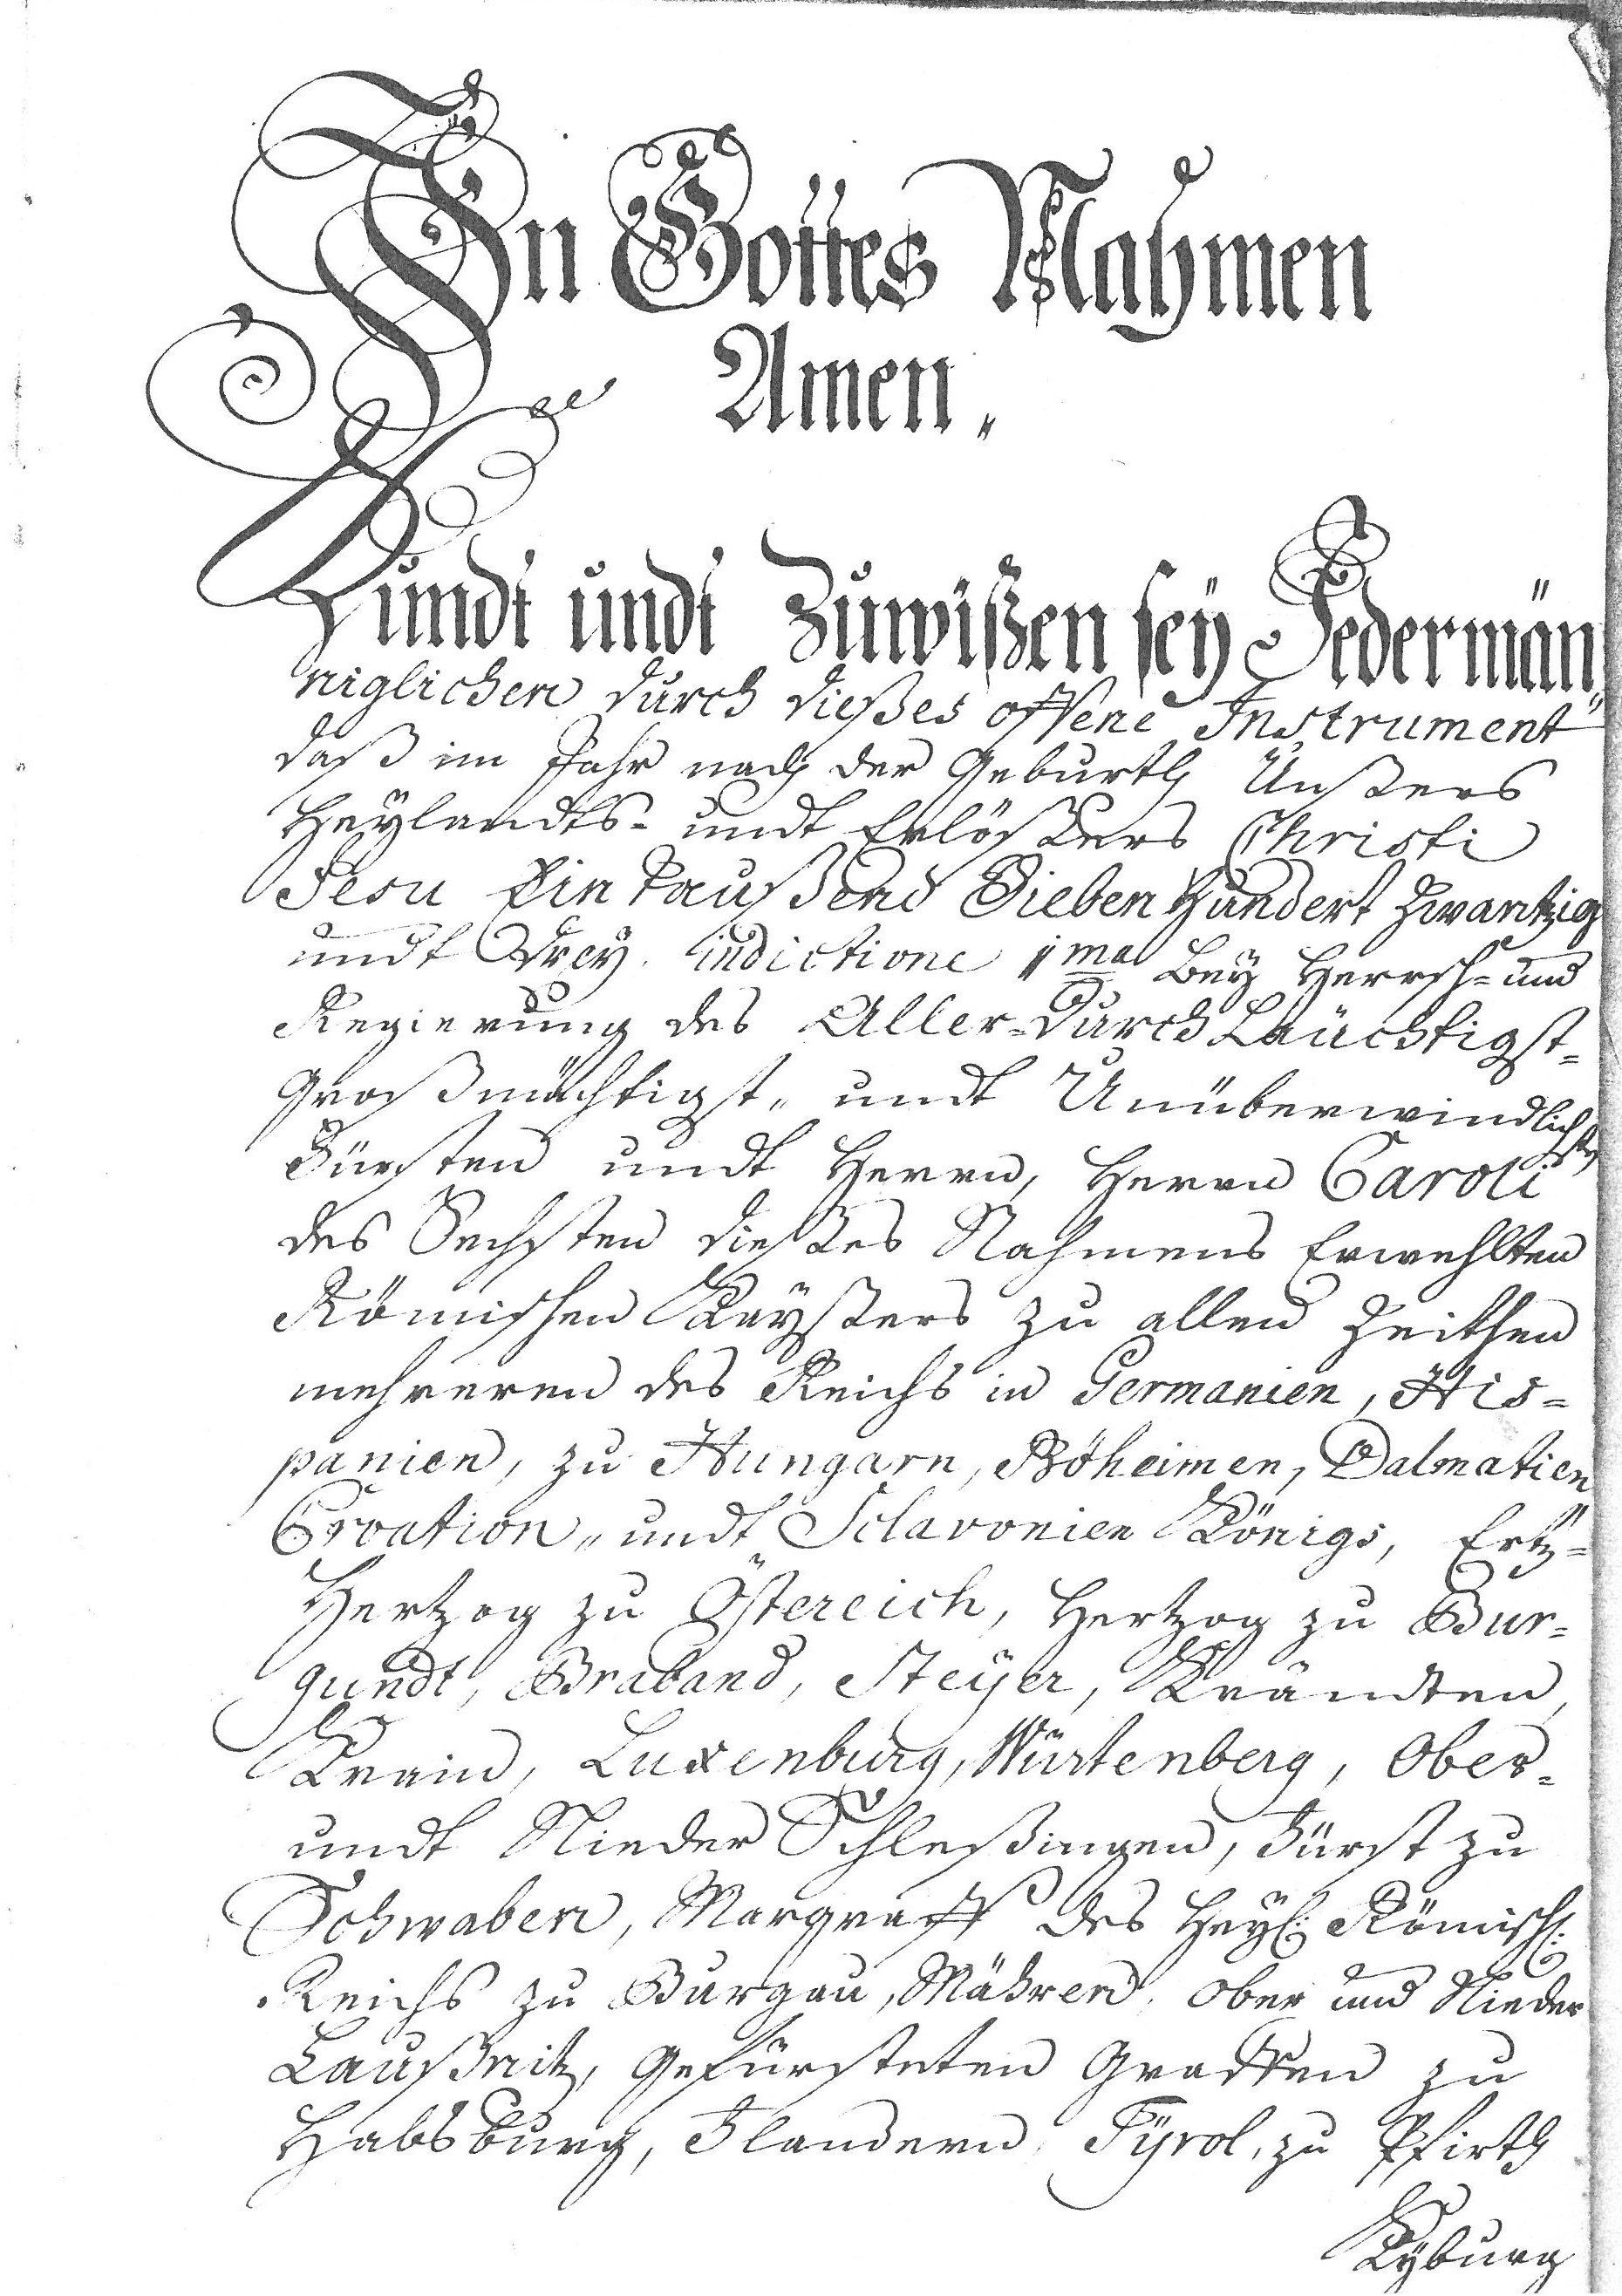 In Gottes Nahmen
Amen„
Kundt undt Zuwißen sey Jedermän„
niglichen durch dießes offene Instrument
daß im Jahr nach der Geburth Unßers
Heylandts- undt Erlößers Christi
Jesu Ein Taußend Sieben Hundert Zwantzig
undt Drey. indictione 1ma Bey Herrsch- und
Regierung des Aller-DurchLäuchtigst-
Großmächtigst„ undt Unüberwindlichsten
Fürsten undt Herrn, Herrn Caroli
des Sechsten dießes Nahmens Erwehlten
Römischen Kayßers zu allen Zeithen
mehreren des Reichs in Germanien, His-
panien, zu Hungarn, Böheimen, Dalmatien
Croation„ undt Sclavonien Königs, Ertz-
Hertzog zu Östereich, Hertzog zu Bur-
gundt, Braband, Steÿer, Krändten,
Krain, Luxenburg, Würtenberg, Ober-
undt Nieder Schleßingen, Fürst zu
Schwaben, Margraff des Heyl: Römisch:
Reichs zu Burgau, Mähren, Ober und Nieder
Laußnitz, Gefürsteten Graffen zu
Habsburg, Flandern, Tÿrol, zu Pfirth
Kyburg